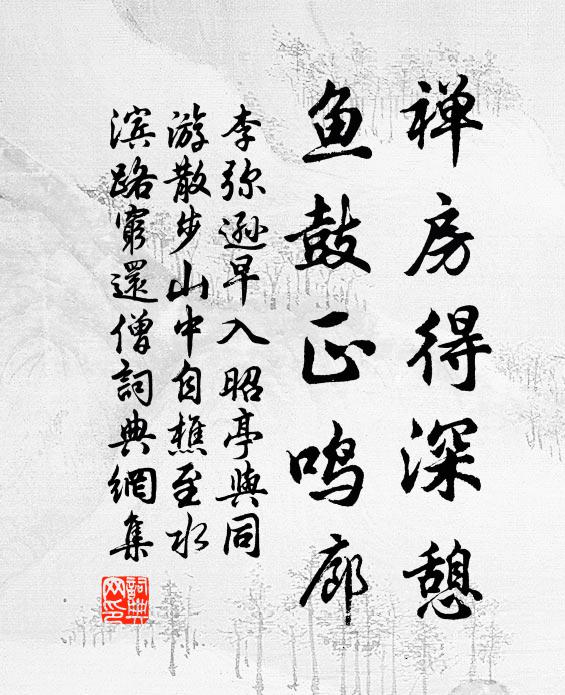 禅房得深憩
鱼鼓正鸣廊
李弥逊早入昭亭与同
游散步山中自樵至水
滨路窮還僧詞典網集